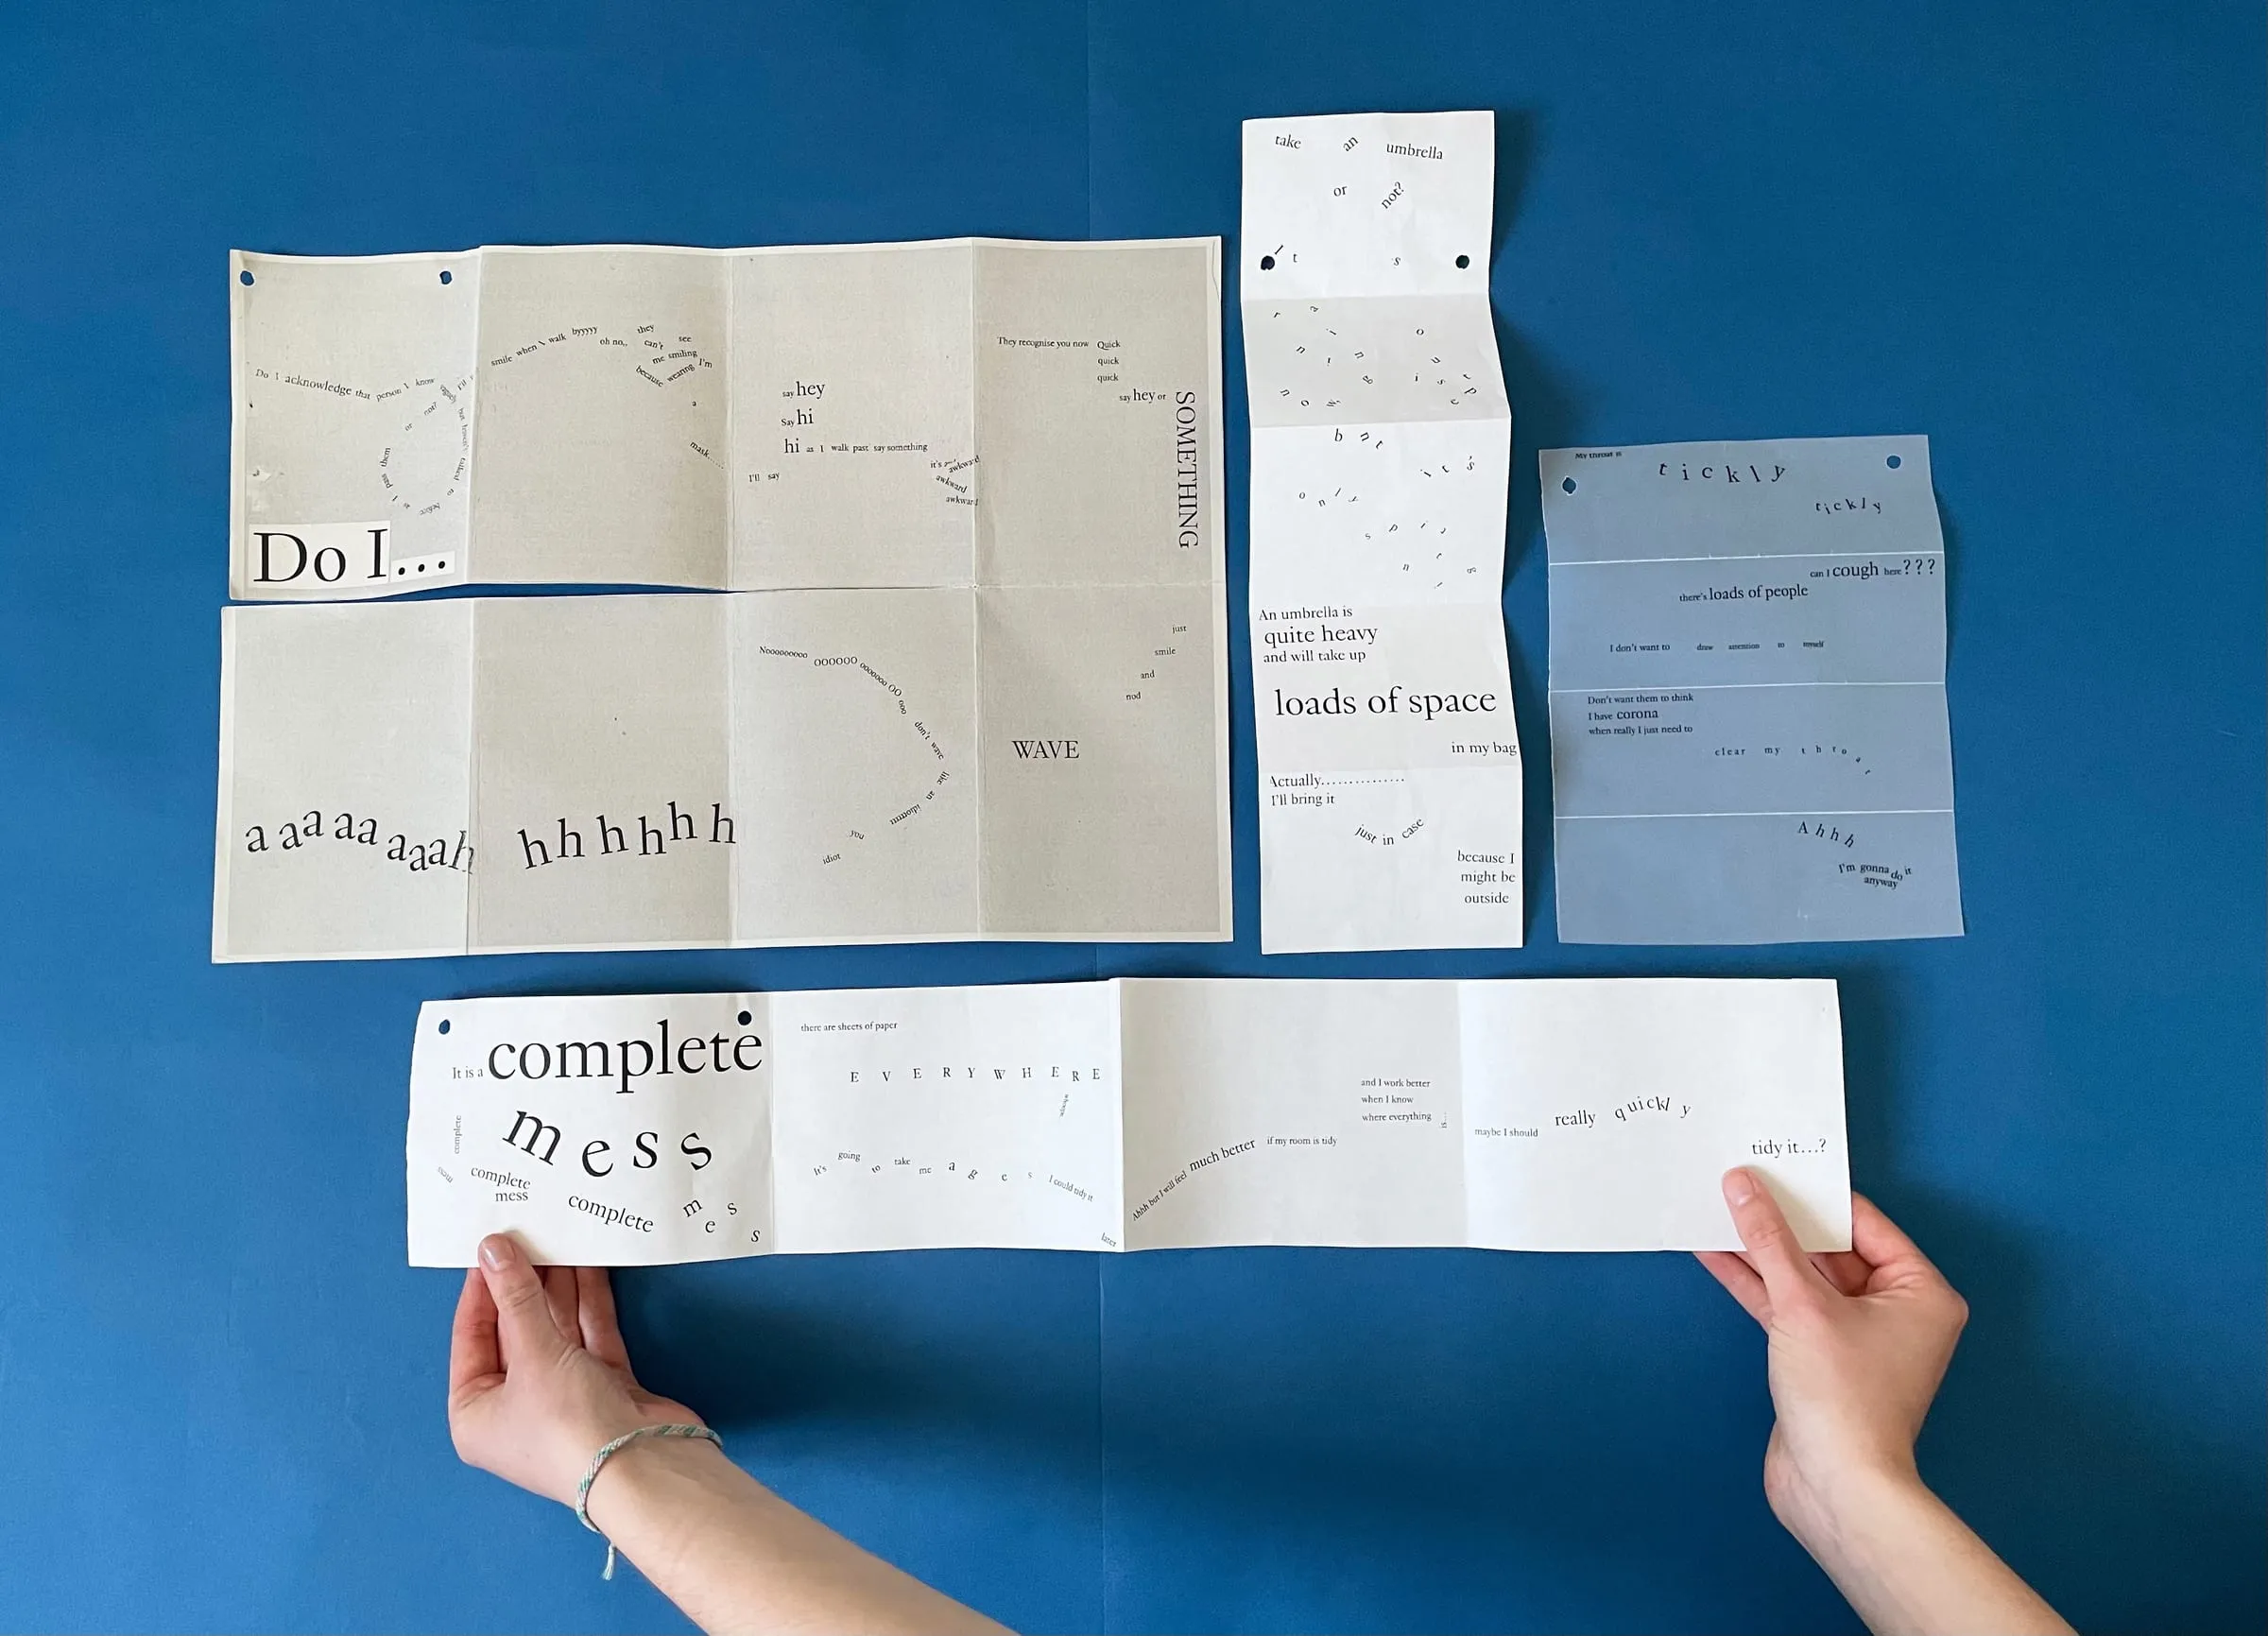 Do I acknowledge that person I know
or not?
as I pass them
Do I...
smile when I walk byyyyy
oh no,,
they can't see
me smiling
because I'm wearing
a
mask......
say hey
Say hi
hi as I walk past say something
I'll say
it's
awkward
awkward
awkward
They recognise you now Quick
quick
quick
say hey or
SOMETHING
a aa aa aaah
hh hhhh
Nooooooooo oooooo ooooooo OO ooo
don't wave like an
mmmoron
you
idiot
WAVE
just
smile
and
nod
take an umbrella
or not?
It s
raining
now
outside
but
it's
only
spitting
An umbrella is
quite heavy
and will take up
loads of space
in my bag
Actually...............
I'll bring it
just in case
because I
might be
outside
My throat is
tickly
tickly
can I cough here???
there's loads of people
I don't want to draw attention to myself
Don't want them to think
I have corona
when really I just need to
clear my throat
Ahhh
I'm gonna do it
anyway
It is a complete
mess
complete
mess
complete
mess
complete
mess
there are sheets of paper
EVERYWHERE
always
It's going to take me ages I could tidy it
later
Ahhh but I will feel much better if my room is tidy
and I work better
when I know
where everything
is
maybe I should really quickly
tidy it...?